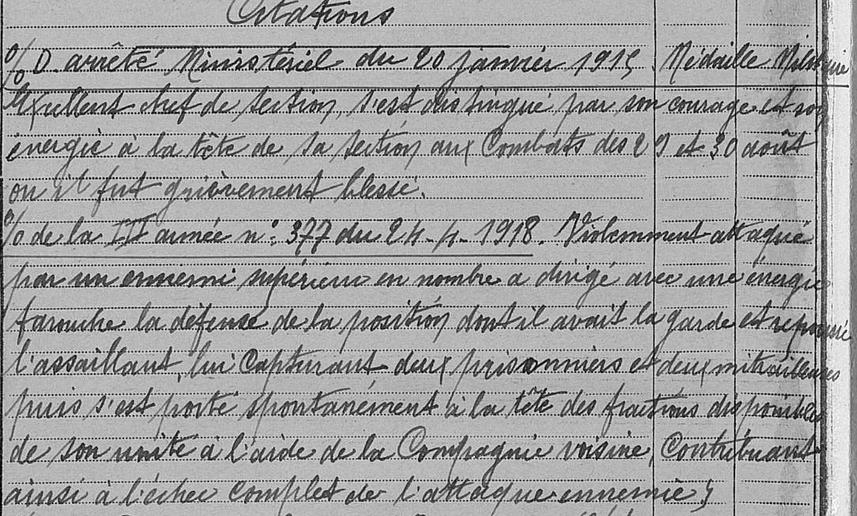 Citations
% D arrêté Ministériel du 20 janvier 1915. Médaille Militaire
Excellent chef de section, s'est distingué par son courage et son
énergie à la tête de sa section aux Combats des 29 et 30 août
ou il fut grièvement blessé.
% de la III armée n° 377 du 24-4-1918. Violemment attaqué
par un ennemi supérieur en nombre a dirigé avec une énergie
farouche la défense de la position dont il avait la garde et repoussé
l'assaillant, lui capturant deux prisonniers et deux mitrailleuses
puis s'est porté spontanément à la tête des fractions disponibles
de son unité à l'aide de la Compagnie voisine, contribuant
ainsi à l'échec complet de l'attaque ennemie,